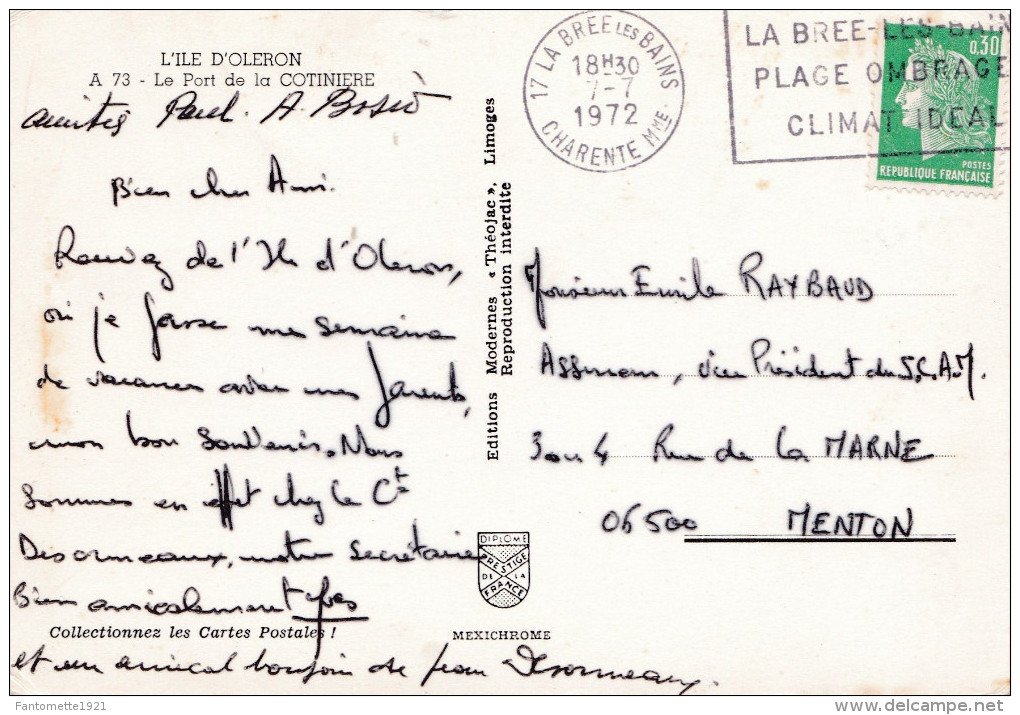 L'ILE D'OLERON
A 73 - Le Port de la COTINIERE
amitiés Paul. A.
Bien cher Ami.
Recevez de l'Ile d'Oleron,
où je passe une semaine
de vacances avec mes parents,
mon bon souvenir. Nous
sommes en effet chez le Cte
Desormeaux, notre Secrétaire
Bien amicalement
Collectionnez les Cartes Postales !
et un amical bonjour de Jean Desormeaux.
Editions Modernes « Théojac », Limoges
Reproduction interdite
DIPLOME
PRESTIGE
DE LA
FRANCE
MEXICHROME
17 LA BREE LES BAINS
18H30
7-7
1972
CHARENTE MME.
LA BREE-LES-BAIN
PLAGE OMBRAGE
CLIMAT IDEAL
0,30
POSTES
REPUBLIQUE FRANÇAISE
Monsieur Emile RAYBAUD
Assureur, Vice Président du S.C.A.M.
3 ou 4 Rue de la MARNE
06500 MENTON
Fantomette1921